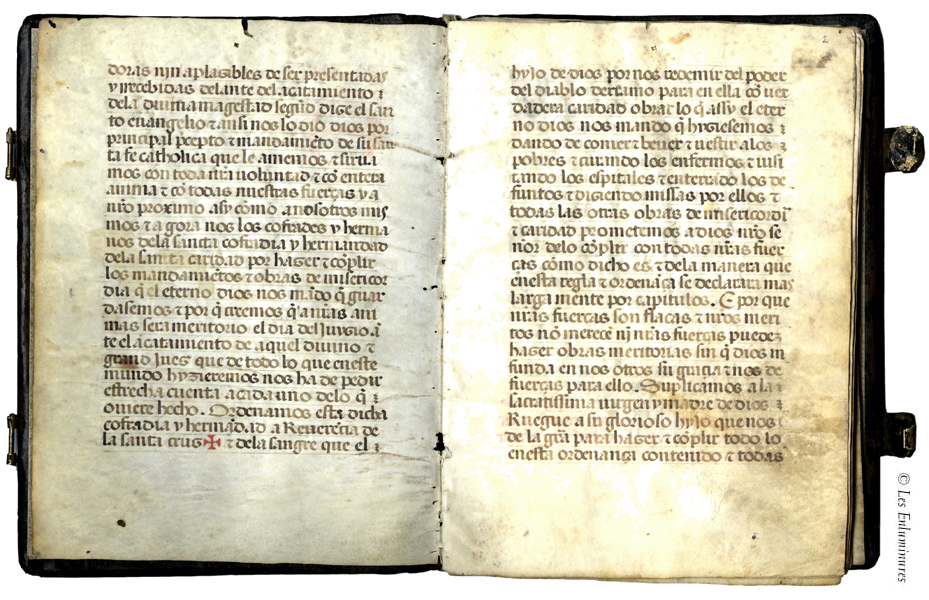 doras nin aplasibles de ser presentadas
y rrecebidas delante del acatamiento ⁊
dela diuina magestad segūd dize el san
to euangelio ⁊ ansi nos lo dio dios por
principal p̄cepto ⁊ mandamiēto de su san
ta fe catholica que le amemos ⁊ sirua
mos con toda nr̄a uoluntad ⁊ cō entera
anima ⁊ cō todas nuestras fuerças y a
nr̄o proximo asy cōmo a nosotros mis
mos ⁊ agora nos los cofrades y herma
nos dela sancta cofradia y hermandad
dela sancta caridad por hazer ⁊ cōplir
los mandamiētos ⁊ obras de misericor
dia q̄ el eterno dios nos mādo q̄ guar
dasemos ⁊ por q̄ creemos q̄ a nr̄as ani
mas sera meritorio el dia del Juyzio ā
te el acatamiento de aquel diuino ⁊
grand Juez que de todo lo que eneste
mundo hyzieremos nos ha de pedir
estrecha cuenta acada uno delo q̄ ⁊
ouiere hecho. Ordenamos esta dicha
cofradia y hermādad a Reuerēcia de
la santa cruz ✠ ⁊ dela sangre que el ⁊
2
hyjo de dios por nos redemir del poder
del diablo derramo para en ella cō uer
dadera caridad obrar lo q̄ assy el eter
no dios nos mando q̄ hyziesemos ⁊
dando de comer ⁊ beuer ⁊ uestir alos ⁊
pobres ⁊ curando los enfermos ⁊ uisi
tando los espitales ⁊ enterrādo los de
funtos ⁊ diziendo missas por ellos ⁊
todas las otras obras de misericordia
⁊ caridad prometemos a dios nr̄o se
ñor delo cōplir con todas nr̄as fuer
ças cōmo dicho es ⁊ dela manera que
enesta regla ⁊ ordenāça se declarara mas
larga mente por capitulos. E por que
nr̄as fuerças son flacas ⁊ nr̄os meri
tos nō merecē nj nr̄as fuerças puedē
hazer obras meritorias sin q̄ dios in
funda en nos otros su gracia ⁊ nos de
fuerças para ello. Suplicamos a la ⁊
sacratissima uirgen y madre de dios ⁊
Ruegue a su glorioso hyjo que nos ⁊
de la grā para hazer ⁊ cōplir todo lo
enesta ordenança contenido ⁊ todas
© Les Enluminures